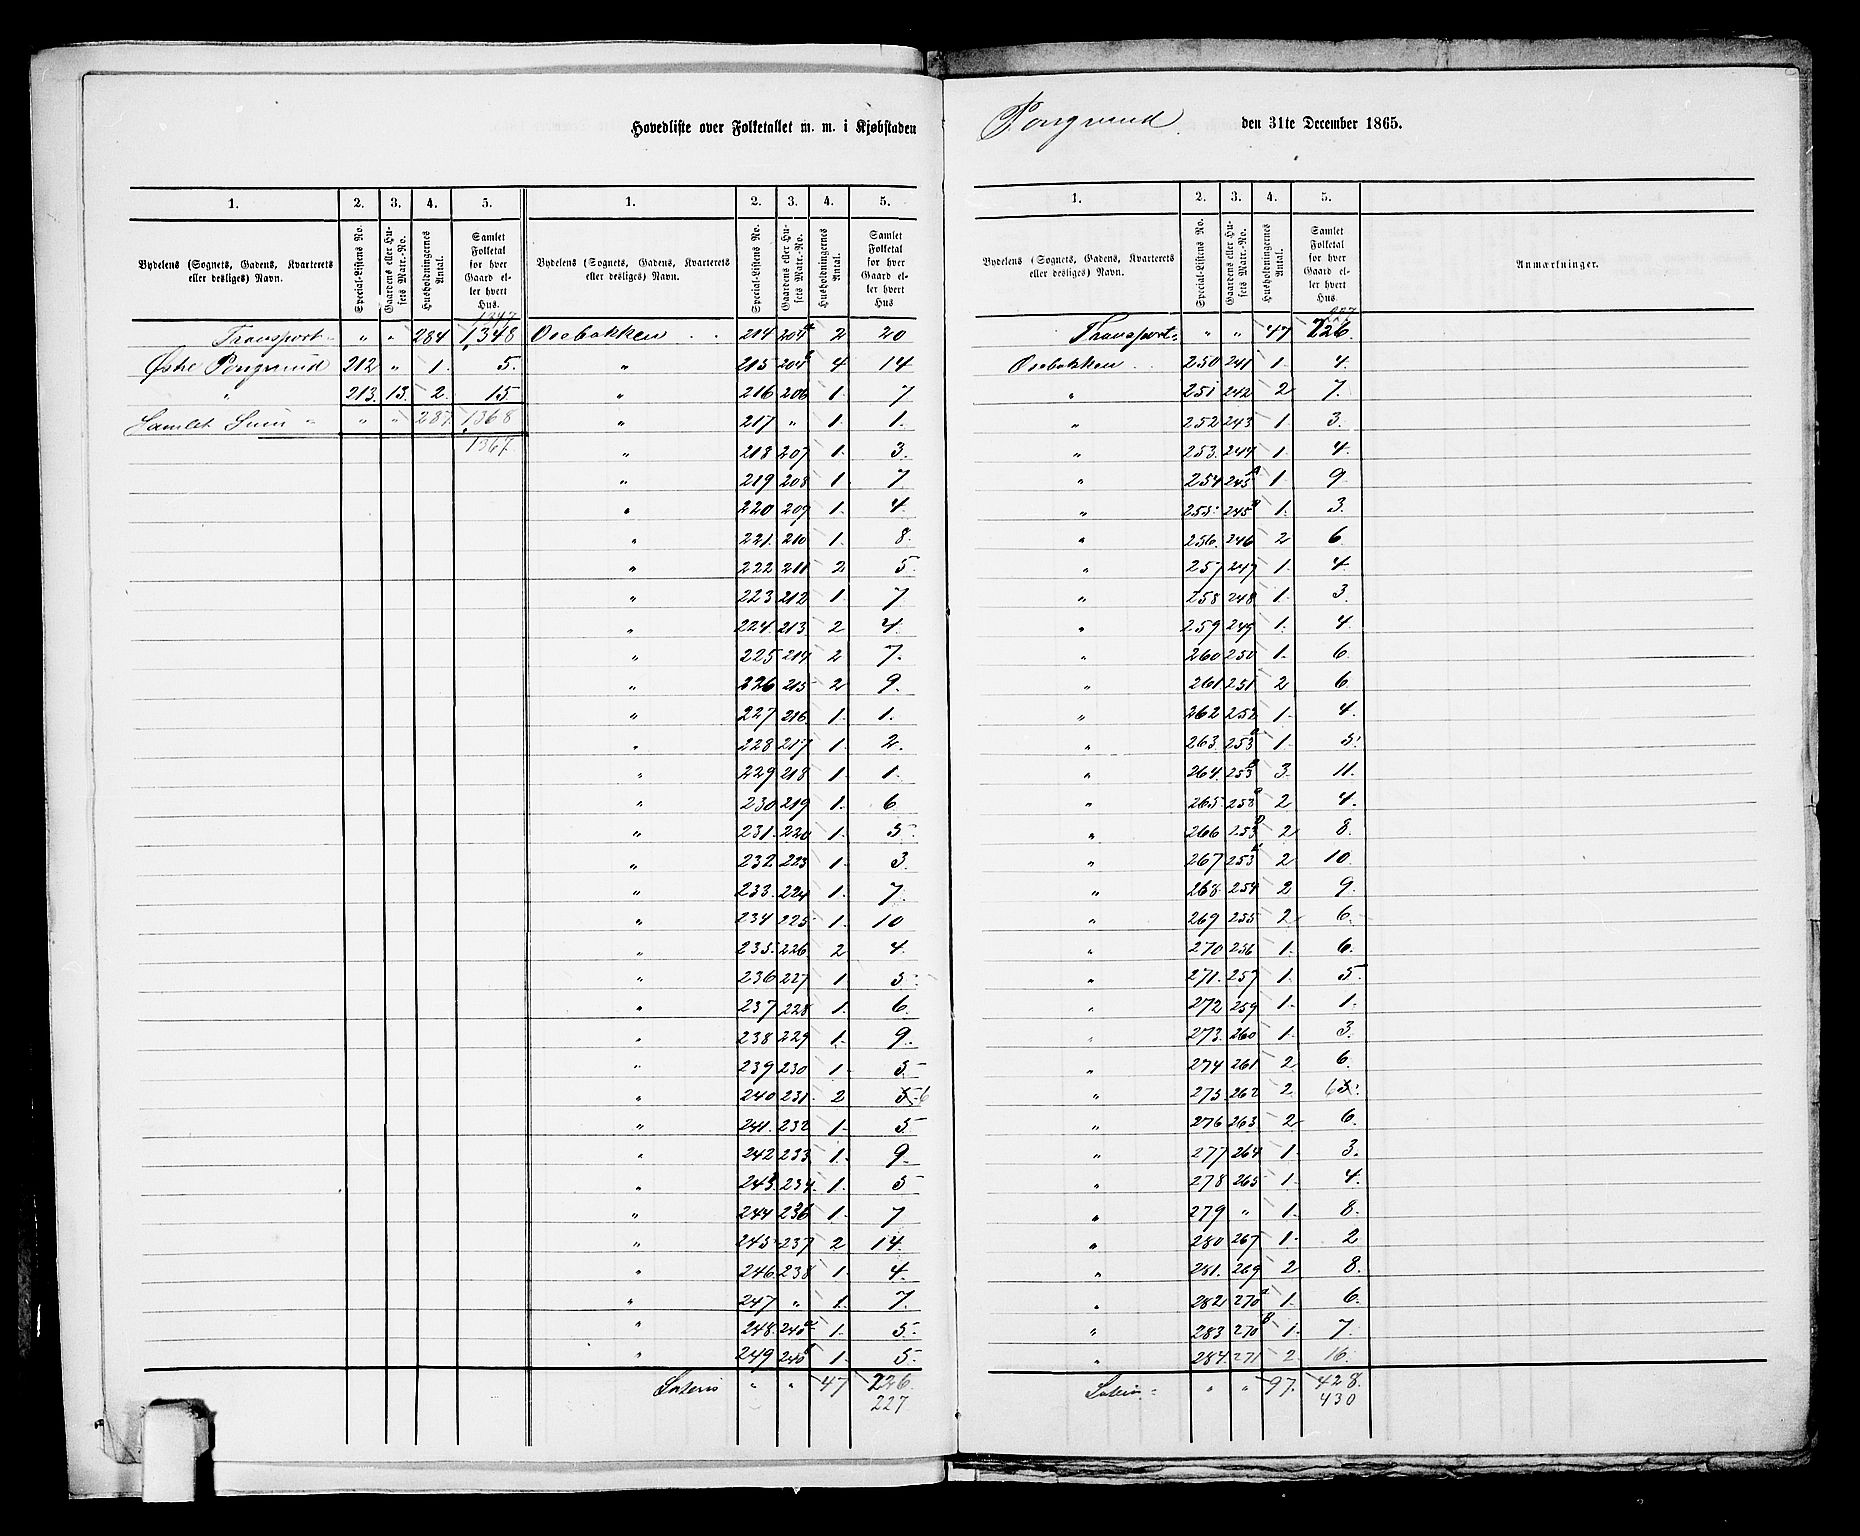 Hovedliste over Folketallet m. m. i Kjøbstaden Porsgrund den 31te December 1865.
1. 2. 3. 4. 5. 1. 2. 3. 4. 5.
Bydelens (Sognets, Gadens, Kvarterets eller desliges) Navn. Special-Listens No. Gaardens eller Husets Matr.-No. Husholdningernes Antal. Samlet Folketal for hver Gaard eller hvert Hus.
Bydelens (Sognets, Gadens, Kvarterets eller desliges) Navn. Special-Listens No. Gaardens eller Husets Matr.-No. Husholdningernes Antal. Samlet Folketal for hver Gaard eller hvert Hus
1347
Transport " " 284 1348
Østre Porsgrund 212 " 1 5.
" 213 13. 2. 15.
Samlet Sum " " 287 1368
1367
Osebakken 214 204 2 20
" 215 204 4 14
" 216 206 1 7
" 217 " 1 1.
" 218 207 1 3.
" 219 208 1 7
" 220 209 1. 4.
" 221. 210 1. 8.
" 222 211 2 5.
" 223 212 1. 7.
" 224. 213 2 4.
" 225 214 2 7.
" 226 215 2 9.
" 227 216 1. 1.
" 228 217 1. 2.
" 229 218 1. 1.
" 230 219 1. 6
" 231. 220 1. 5.
" 232 223 1. 3
" 233. 224 1. 7.
" 234 225 1. 10
" 235. 226 2 4.
" 236 227 1 5.
" 237 228 1. 6.
" 238 229 1. 9.
" 239 230 1. 5
" 240 231 2 5 6
" 241. 232 1. 5
" 242 233 1. 9.
" 243. 234 1. 5
" 244 236 1. 7
" 245 237 2 14.
" 246 238 1. 4.
" 247 " 1. 7.
" 248. 240 1. 5.
" 249 240 1. 5.
Lateris " " 47 226.
227
1. 2. 3. 4. 5.
Bydelens (Sognets, Gadens, Kvarterets eller desliges) Navn. Special-Listens No. Gaardens eller Husets Matr.-No. Husholdningernes Antal. Samlet Folketal for hver Gaard eller hvert Hus. Anmærkninger.
227
Transport " " 47 226.
Osebakken 250 241 1 4.
" 251 242 2 7.
" 252 243 1 3.
" 253. 244 1. 4.
" 254 245A 1 9
" 255 245B 1. 3.
" 256. 246 2 6
" 257 247 1. 4
" 258 248 1. 3.
" 259 249 1. 4
" 260 250 1. 6
" 261 251 2 6
" 262 252 1. 4.
" 263 253 1. 5.
" 264. 253 3. 11.
" 265 253 2 4.
" 266 253 2 8.
" 267 253 2 10.
" 268 254 2 9.
" 269 255 2 6.
" 270 256 1. 6.
" 271. 257 1. 5.
" 272 259 1. 1.
" 273. 260 1. 3.
" 274 261 2 6.
" 275 262 2 6 5.
" 276 263 2 6.
" 277 264 1. 3.
" 278 265 1. 4.
" 279 " 1. 8.
" 280 267 1. 2
" 281. 269 2 8.
" 282 270 1. 6.
" 283 270B 1. 7.
" 284. 271 2 16.
Lateris " " 97. 428.
430